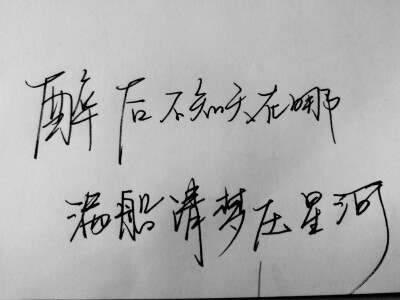 醉后不知天在哪
满船清梦压星河